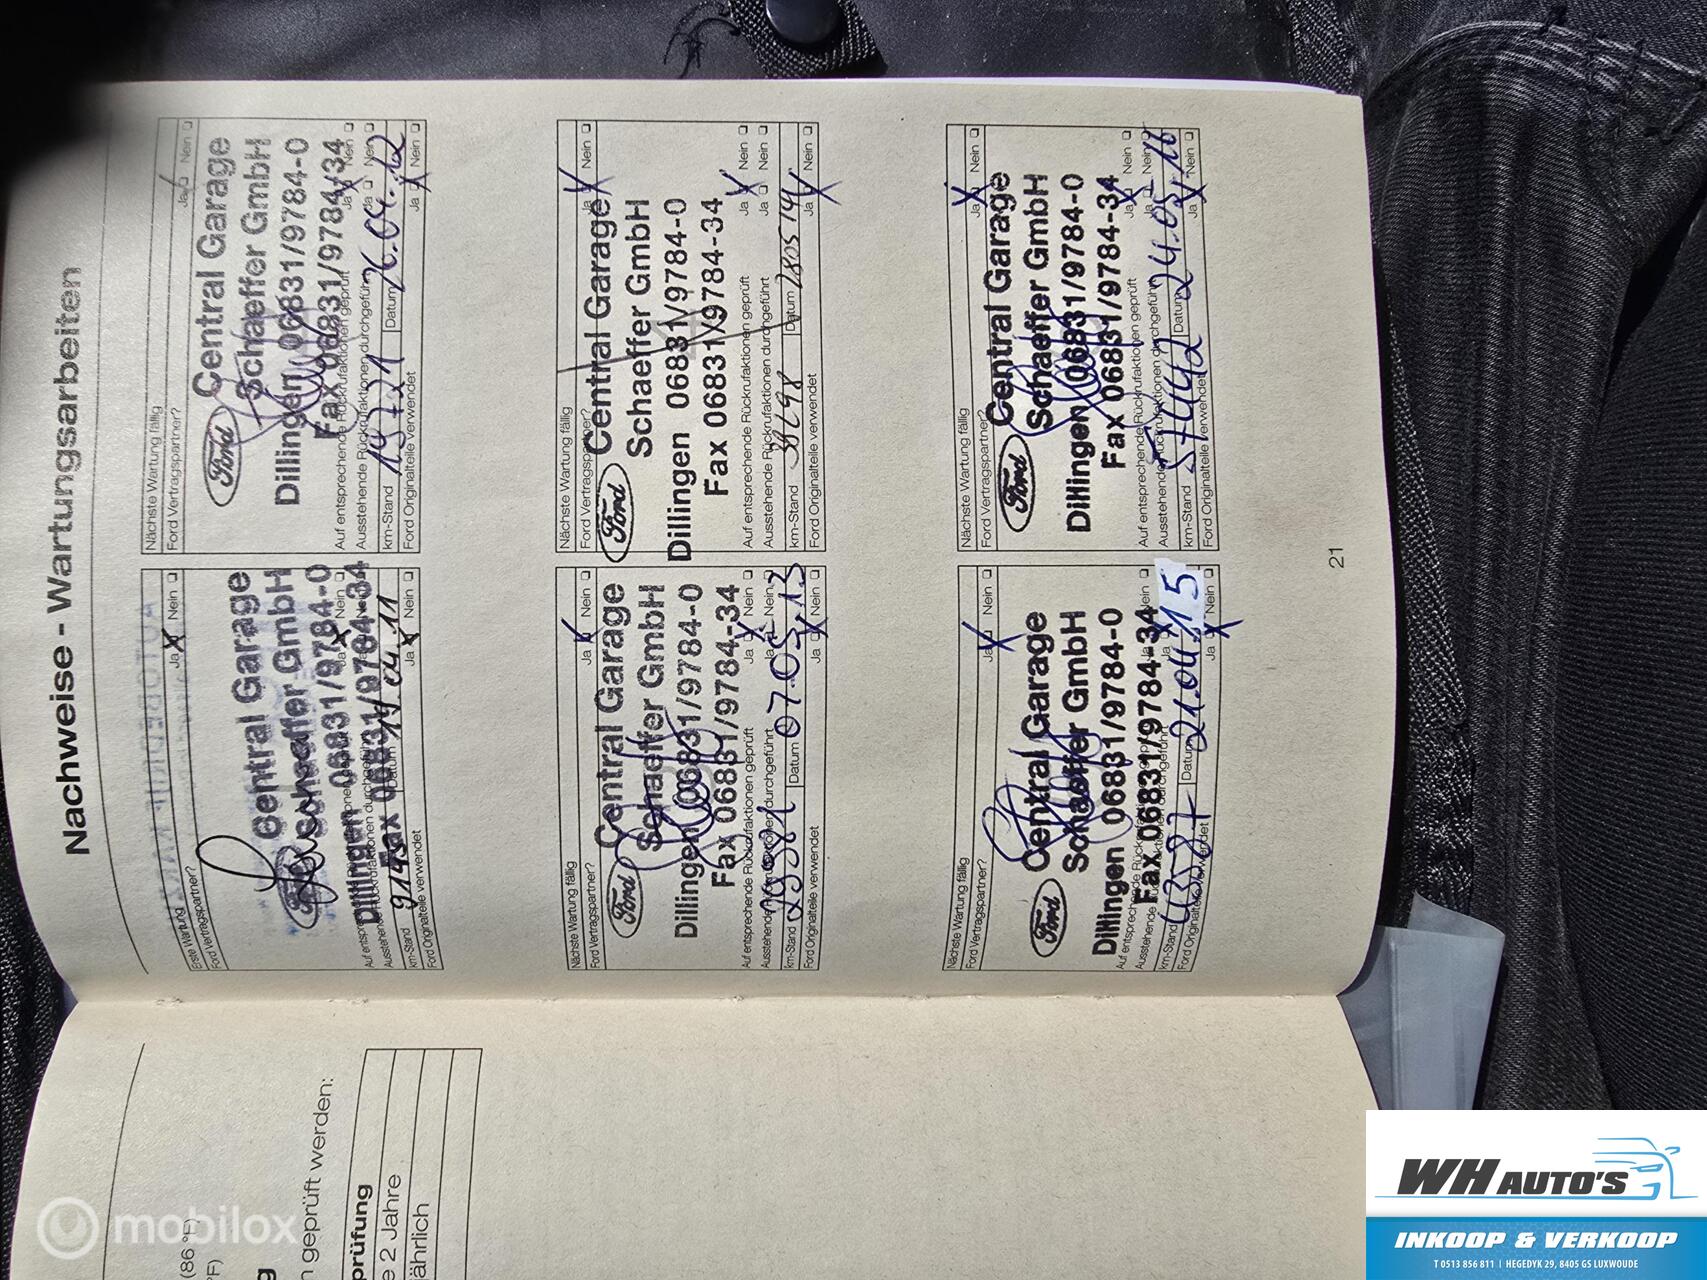 Nachweise - Wartungsarbeiten
Erste Wartung
Ford Vertragspartner? Ja Nein
Central Garage
Schaeffer GmbH
Dillingen 06831/9784-0
Fax 06831/9784-34
km-Stand Datum 14/04.11
Ford Originalteile verwendet Ja Nein
Nächste Wartung fällig
Ford Vertragspartner? Ja Nein
Ford
Central Garage
Schaeffer GmbH
Dillingen 06831/9784-0
Fax 06831/9784-34
Auf entsprechende Rückrufaktionen geprüft Ja Nein
Ausstehende Rückrufaktionen durchgeführt Ja Nein
km-Stand Datum 26.04.12
Ford Originalteile verwendet Ja Nein
Nächste Wartung fällig
Ford Vertragspartner? Ja Nein
Ford
Central Garage
Schaeffer GmbH
Dillingen 06831/9784-0
Fax 06831/9784-34
Auf entsprechende Rückrufaktionen geprüft Ja Nein
Ausstehende Rückrufaktionen durchgeführt Ja Nein
km-Stand Datum 07.05.13
Ford Originalteile verwendet Ja Nein
Nächste Wartung fällig
Ford Vertragspartner? Ja Nein
Ford
Central Garage
Schaeffer GmbH
Dillingen 06831/9784-0
Fax 06831/9784-34
Auf entsprechende Rückrufaktionen geprüft Ja Nein
Ausstehende Rückrufaktionen durchgeführt Ja Nein
km-Stand Datum
Ford Originalteile verwendet Ja Nein
Nächste Wartung fällig
Ford Vertragspartner? Ja Nein
Ford
Central Garage
Schaeffer GmbH
Dillingen 06831/9784-0
Fax 06831/9784-34
Auf entsprechende Ja Nein
Ausstehende durchgeführt Ja
km-Stand 43587 Datum 21.04.15
Ford Originalteile verwendet Ja Nein
Nächste Wartung fällig
Ford Vertragspartner? Ja Nein
Ford
Central Garage
Schaeffer GmbH
Dillingen 06831/9784-0
Fax 06831/9784-34
Auf entsprechende Rückrufaktionen geprüft Ja Nein
Ausstehende Rückrufaktionen durchgeführt Ja Nein
km-Stand 57442 Datum 24.05.16
Ford Originalteile verwendet Ja Nein
21
(86 °F)
°F)
n geprüft werden:
prüfung
e 2 Jahre
jährlich
mobilox
WH AUTO'S
INKOOP & VERKOOP
T 0513 856 811 | HEGEDYK 29, 8405 GS LUXWOUDE